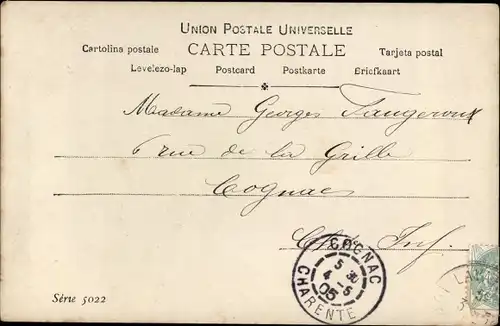 UNION POSTALE UNIVERSELLE
Cartolina postale CARTE POSTALE Tarjeta postal
Levelezo-lap Postcard Postkarte Briefkaart
Madame Georges Faugeroux
6 rue de la Grille
Cognac
Inf.
COGNAC
5 30
4 - 5
05
CHARENTE
Série 5022